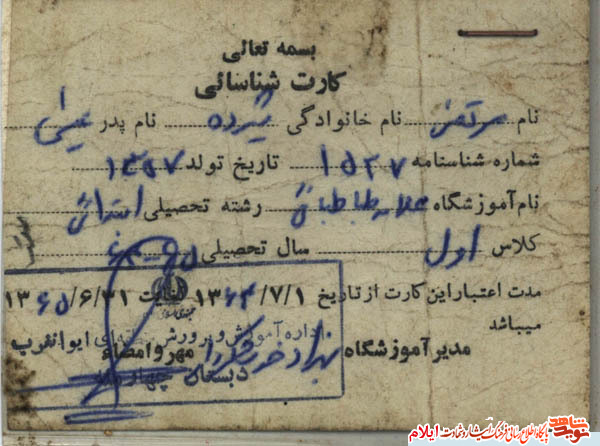 بسمه تعالی
کارت شناسائی
نام مرتضی نام خانوادگی نام پدر عیسی
شماره شناسنامه ۱۵۲۷ تاریخ تولد ۱۳۵۷
نام آموزشگاه علامه طباطبائی رشته تحصیلی ابتدائی
کلاس اول سال تحصیلی ۶۵-۶۴
مدت اعتبار این کارت از تاریخ ۱۳۶۴/۷/۱ لغایت ۱۳۶۵/۶/۳۱
میباشد
اداره آموزش و پرورش ایوانغرب
مدیر آموزشگاه مهر و امضاء
دبستان
نوید شاهد
ایلام